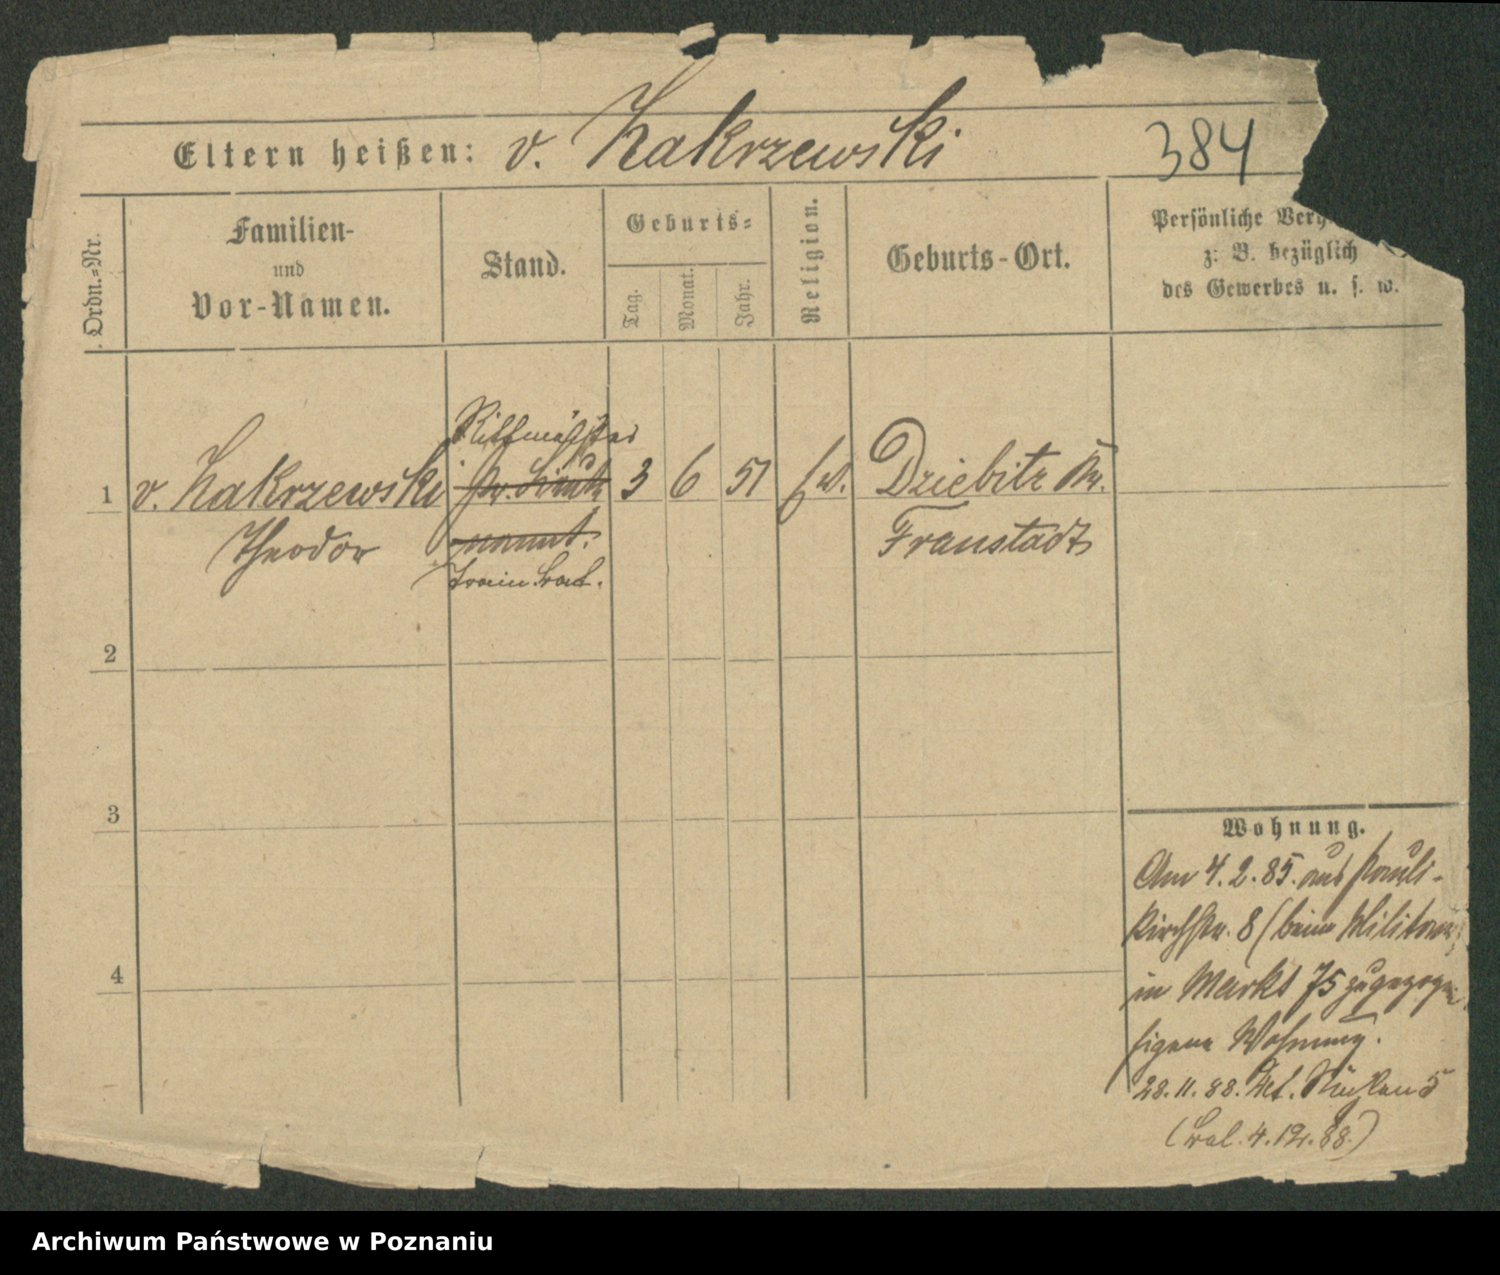 Eltern heißen: v. Zakrzewski
384
Ordn.-Nr.
Familien-
und
Vor-Namen.
Stand.
Geburts-
Tag.
Monat.
Jahr.
Religion.
Geburts-Ort.
Persönliche
z. B. bezüglich
des Gewerbes u. s. w.
Rittmeister
1 v. Zakrzewski Pr. Lieute 3 6 51 Dziebitz Kr.
Theodor nannt. Fraustadt
Train Bat.
2
3
4
Wohnung.
Am 4.2.85. aus Pauli-
kirchstr. 8 (beim Militär
in Markt 75 zugezogen
eigene Wohnung.
28.11.88.
4.12.88.)
Archiwum Państwowe w Poznaniu